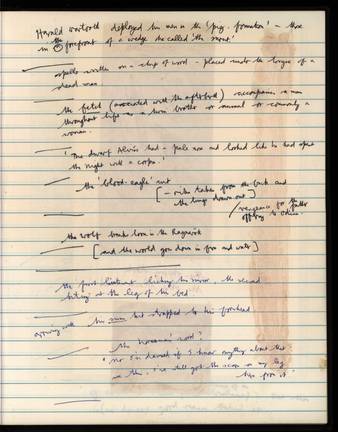 Harald wartooth deployed his men in the 'pig-formation' - those
in the forefront of a wedge he called 'the snout'
spells written on a chip of wood - placed under the tongue of a
dead man.
the fetch (associated with the afterbirth) accompanies a man
throughout life as a twin brother or animal or commonly a
woman.
'The dwarf Alvis had - pale nose and looked like he had spent
the night with a corpse.'
the 'blood-eagle' cut
[- ribs taken from the back and
the lungs drawn out]
/ vengeance for the father
offering to Odin.
the wolf breaks loose in the Ragnarok
[and the world goes down in fire and water]
the first licking his , the second
biting at the leg of his bed
arriving with his strapped to his forehead
the woman's word?
'no I've heard of I know anything about that.
- tho, I've still got the scar on my leg
from it'